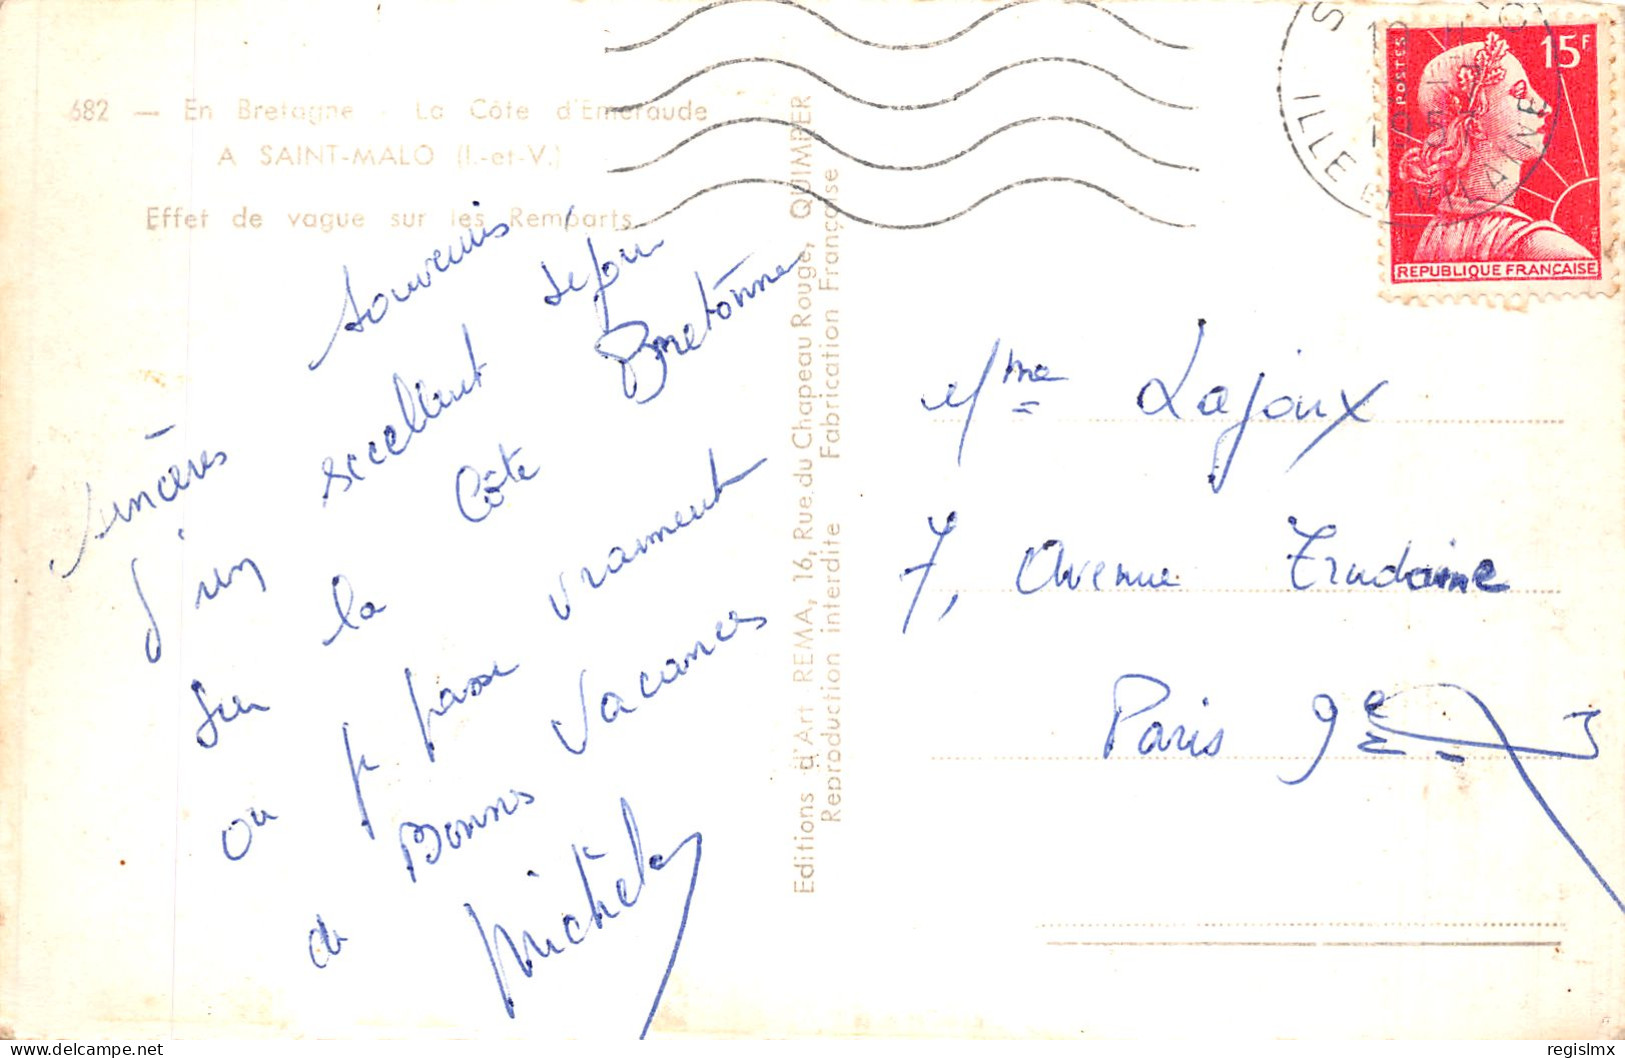 682 — En Bretagne - La Côte d'Emeraude
A SAINT-MALO (I.-et-V.)
Effet de vague sur les Remparts.
sincères souvenirs
d'un excellent séjour
sur la Côte Bretonne
ou je passe vraiment
de Bonnes Vacances
Michèle
Editions d'Art REMA, 16, Rue du Chapeau Rouge, QUIMPER
Reproduction interdite Fabrication Française
ILLE ET VILAINE
POSTES
15F
REPUBLIQUE FRANÇAISE
Mme Lajoux
7, Avenue Trudaine
Paris 9e
regislmx